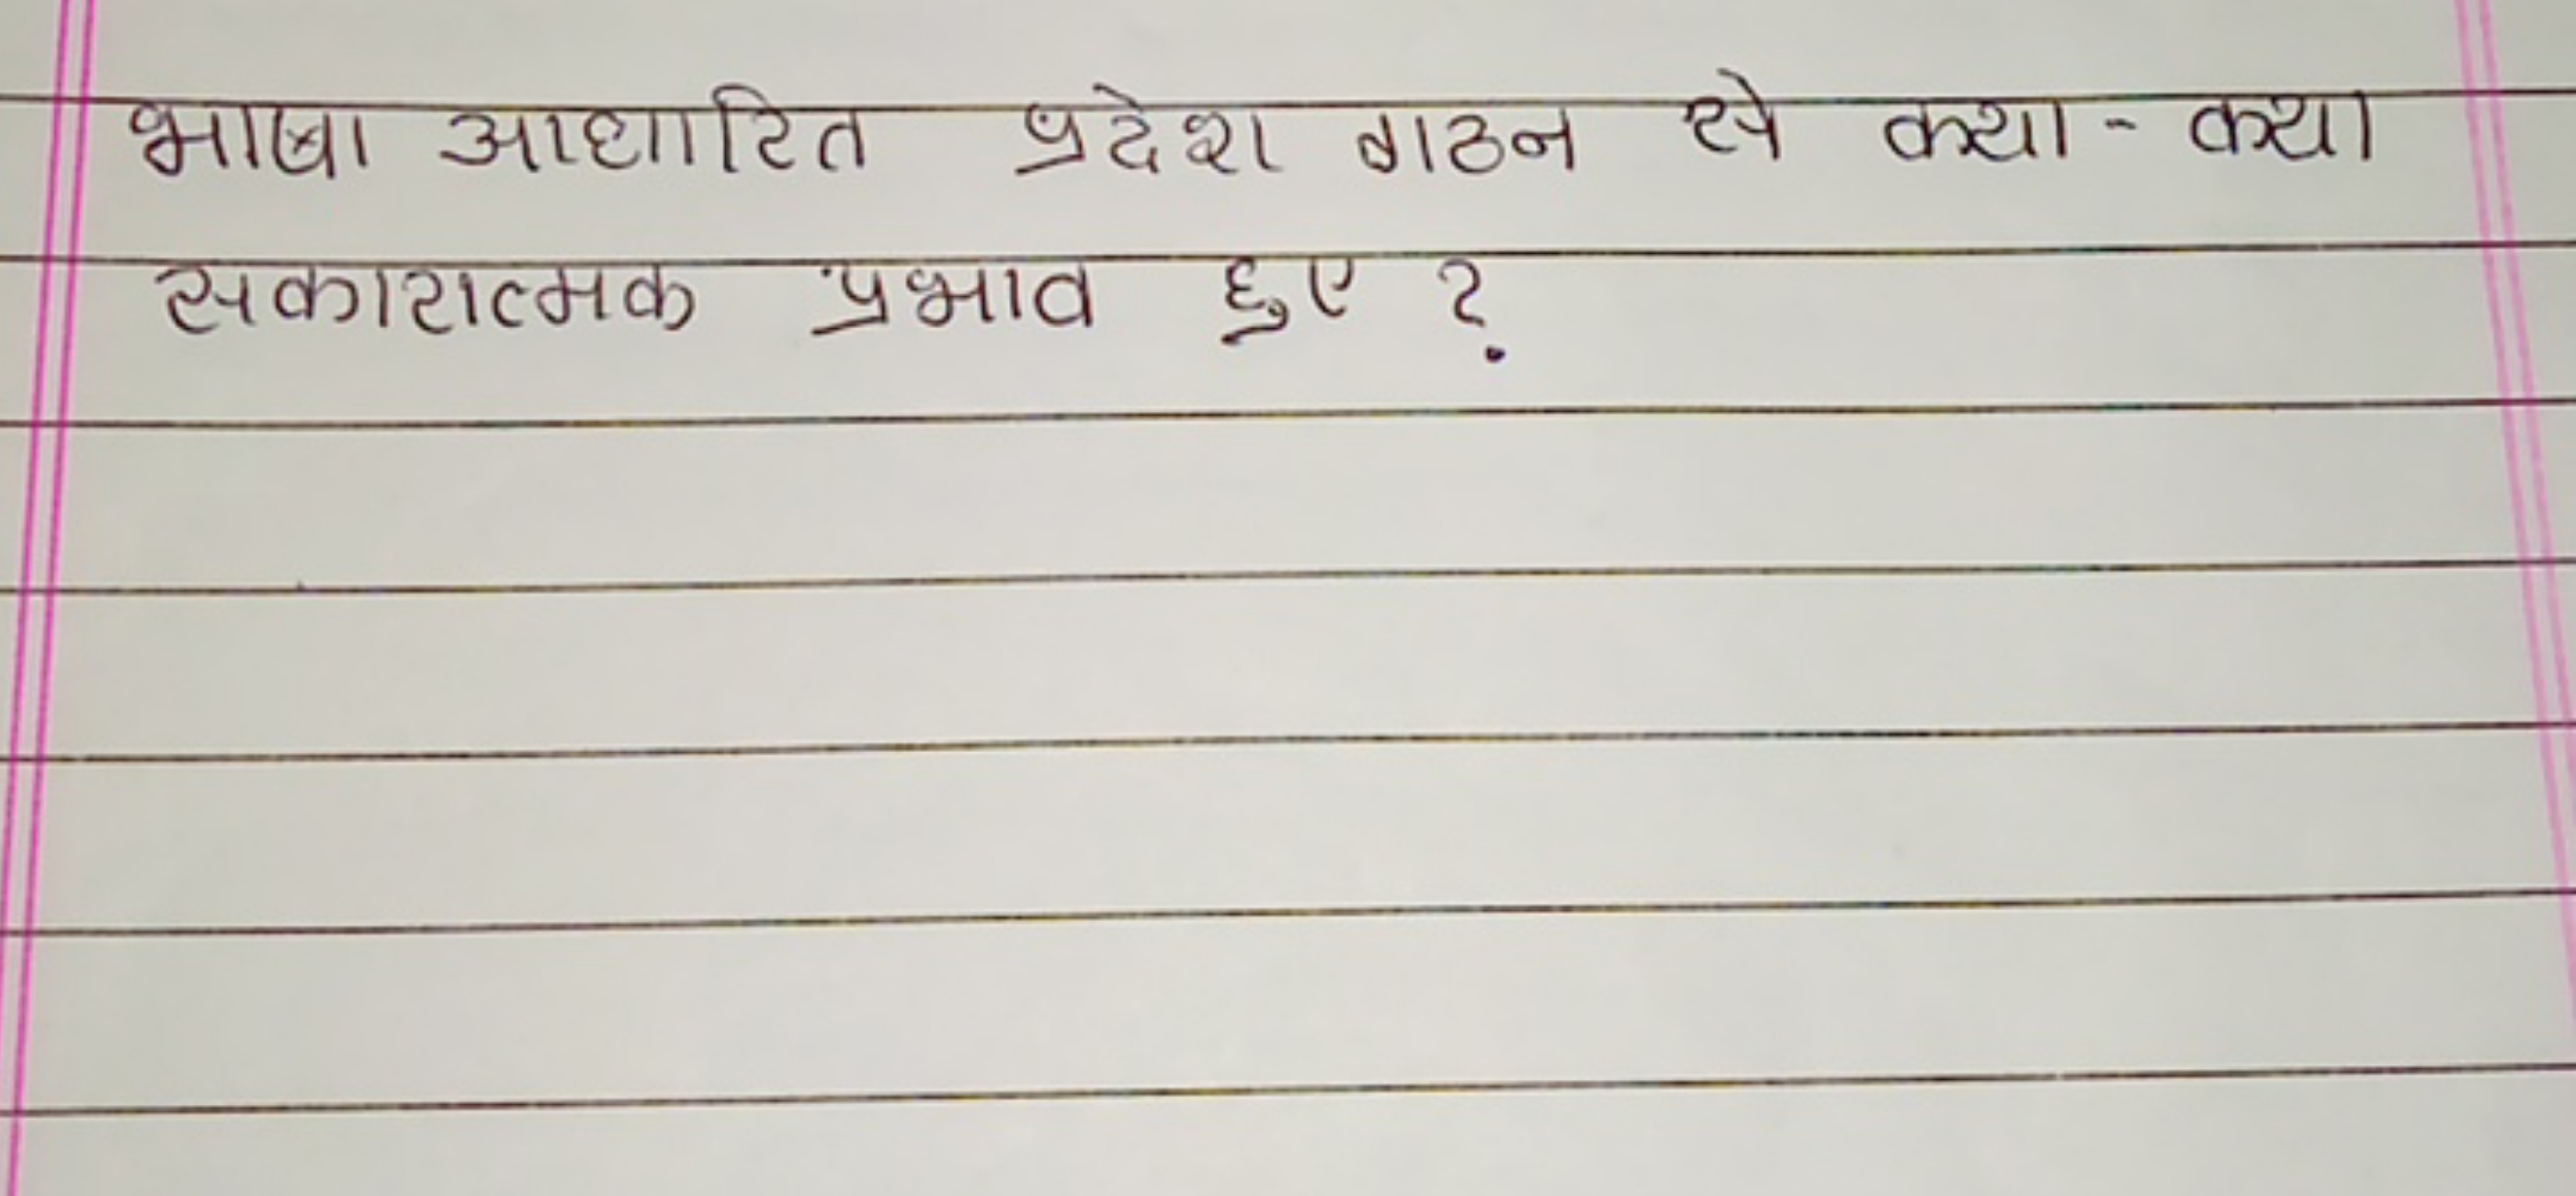 भाषा आधारित प्रदेश गठन से क्या - क्या
सकारात्मक प्रभाव हुए ?